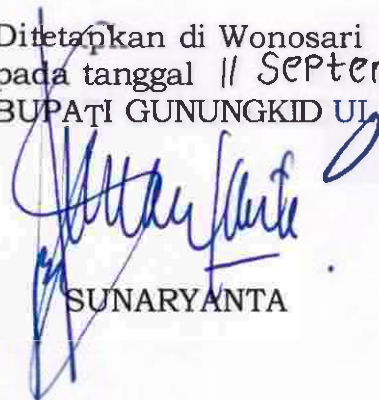 Ditetapkan di Wonosari
pada tanggal 11 Septe
BUPATI GUNUNGKIDUL
SUNARYANTA